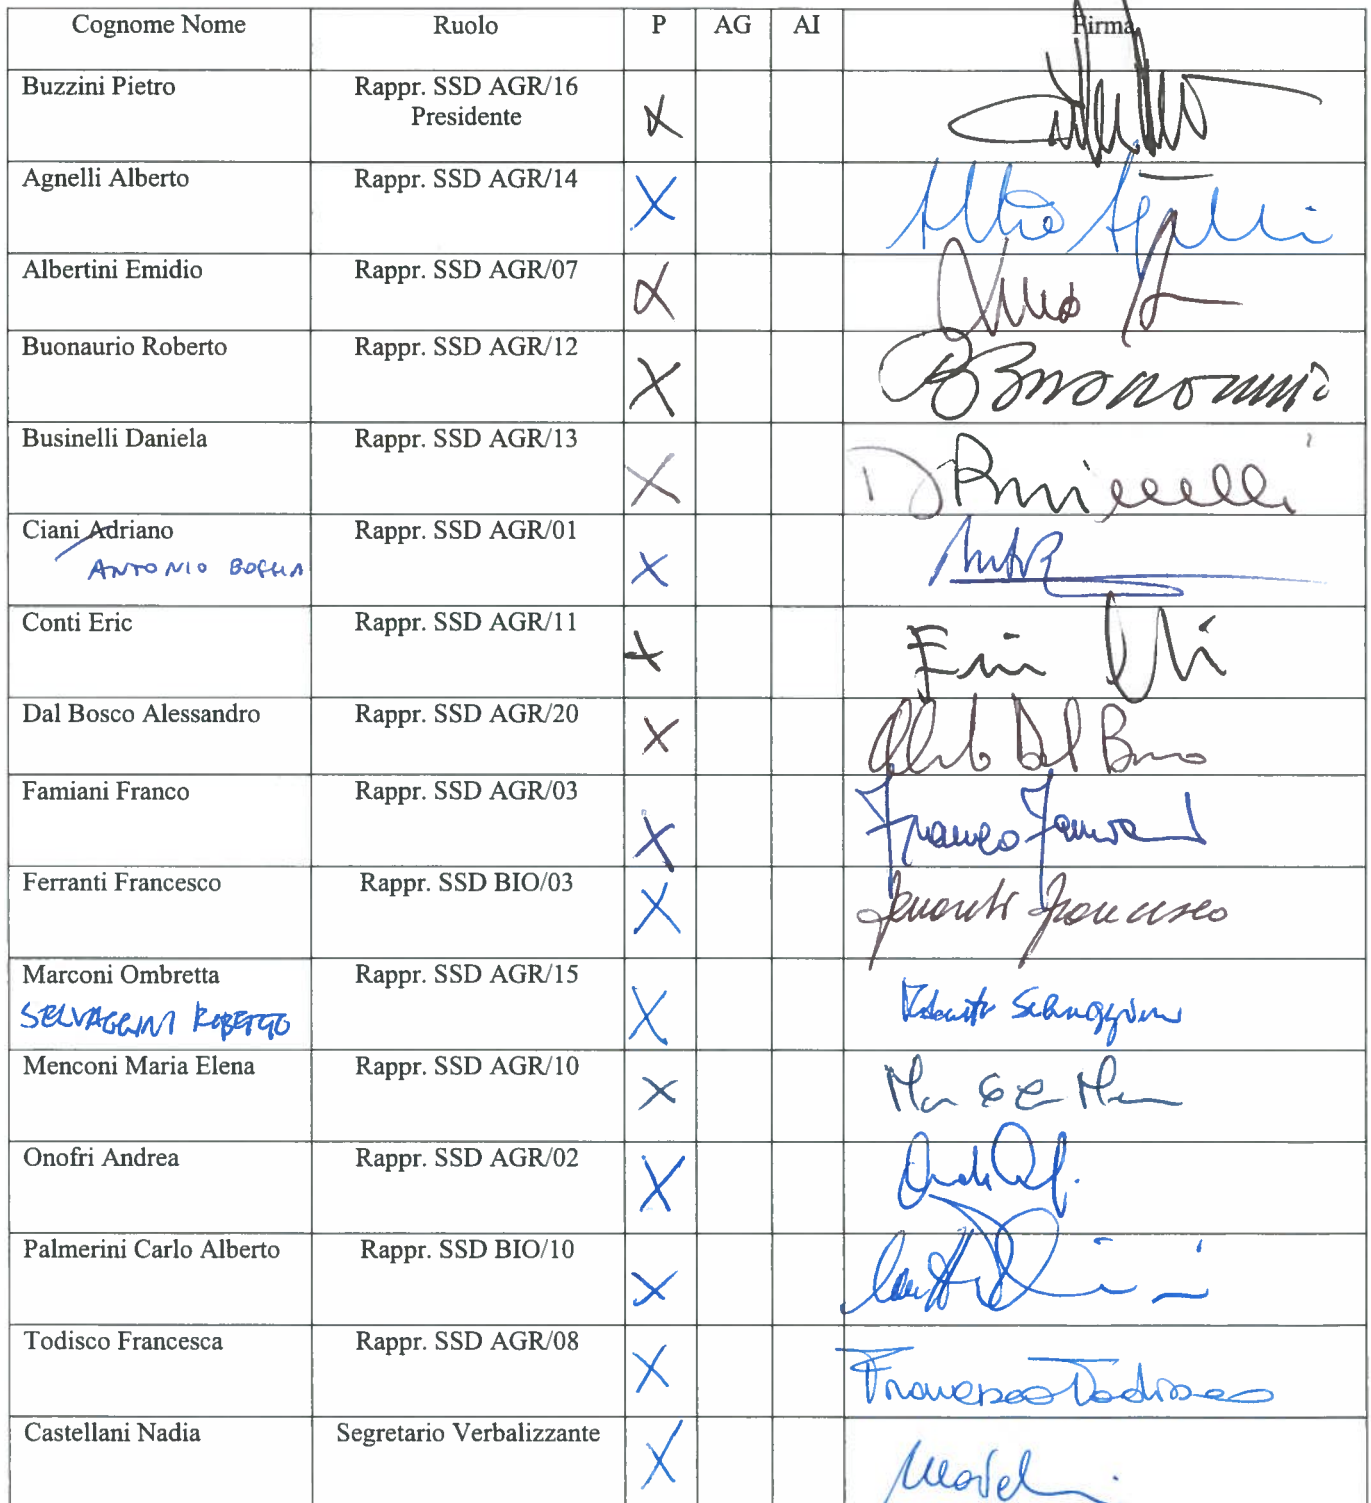 Cognome Nome Ruolo P AG AI Firma
Buzzini Pietro Rappr. SSD AGR/16 X
Presidente
Agnelli Alberto Rappr. SSD AGR/14 X
Albertini Emidio Rappr. SSD AGR/07 X
Buonaurio Roberto Rappr. SSD AGR/12 X
Businelli Daniela Rappr. SSD AGR/13 X
Ciani Adriano Rappr. SSD AGR/01 X
ANTONIO BOGGIA
Conti Eric Rappr. SSD AGR/11 X
Dal Bosco Alessandro Rappr. SSD AGR/20 X
Famiani Franco Rappr. SSD AGR/03 X
Ferranti Francesco Rappr. SSD BIO/03 X Ferranti Francesco
Marconi Ombretta Rappr. SSD AGR/15 X
SELVAGGINI ROBERTO Roberto Selvaggini
Menconi Maria Elena Rappr. SSD AGR/10 X
Onofri Andrea Rappr. SSD AGR/02 X
Palmerini Carlo Alberto Rappr. SSD BIO/10 X
Todisco Francesca Rappr. SSD AGR/08 X Francesca Todisco
Castellani Nadia Segretario Verbalizzante X